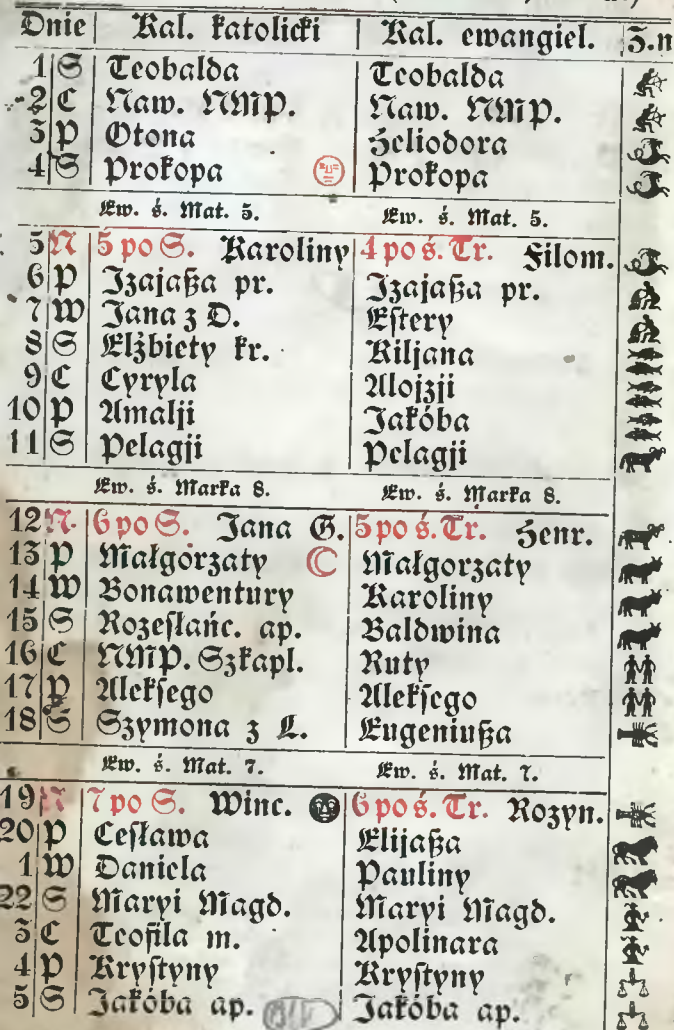 Dnie | Kal. katolicki | Kal. ewangiel. | Z.n
1 S Teobalda Teobalda
2 C Naw. NMP. Naw. NMP.
3 P Otona Heliodora
4 S Prokopa Prokopa
Ew. ś. Mat. 5. Ew. ś. Mat. 5.
5 N 5 po S. Karoliny 4 po ś. Tr. Filom.
6 P Izajaßa pr. Izajaßa pr.
7 W Jana z D. Estery
8 S Elżbiety kr. Kiljana
9 C Cyryla Alojzji
10 P Amalji Jakóba
11 S Pelagji Pelagji
Ew. ś. Marka 8. Ew. ś. Marka 8.
12 N. 6 po S. Jana G. 5 po ś. Tr. Henr.
13 P Małgorzaty Małgorzaty
14 W Bonawentury Karoliny
15 S Rozesłańc. ap. Baldwina
16 C NMP. Szkapl. Ruty
17 P Aleksego Aleksego
18 S Szymona z L. Eugeniußa
Ew. ś. Mat. 7. Ew. ś. Mat. 7.
19 N 7 po S. Winc. 6 po ś. Tr. Rozyn.
20 P Cesława Elijaßa
1 W Daniela Pauliny
22 S Maryi Magd. Maryi Magd.
3 C Teofila m. Apolinara
4 P Krystyny Krystyny
5 S Jakóba ap. Jakóba ap.